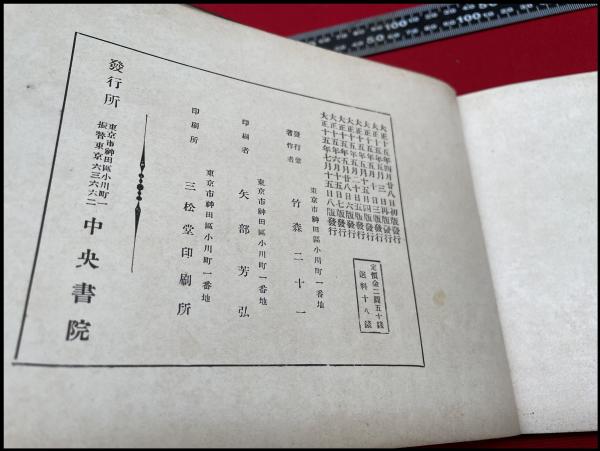 大正十五年四月廿八日初版發行
大正十五年五月三日再版發行
大正十五年五月十日三版發行
大正十五年五月十五日四版發行
大正十五年五月二十日五版發行
大正十五年五月廿八日六版發行
大正十五年六月十五日七版發行
大正十五年七月十五日八版發行
定價金二圓五十錢
送料十八錢
東京市神田區小川町一番地
發行兼
著作者
竹森二十一
東京市神田區小川町一番地
印刷者
矢部芳弘
東京市神田區小川町一番地
印刷所
三松堂印刷所
發行所
東京市神田區小川町一
振替東京六三六六二
中央書院